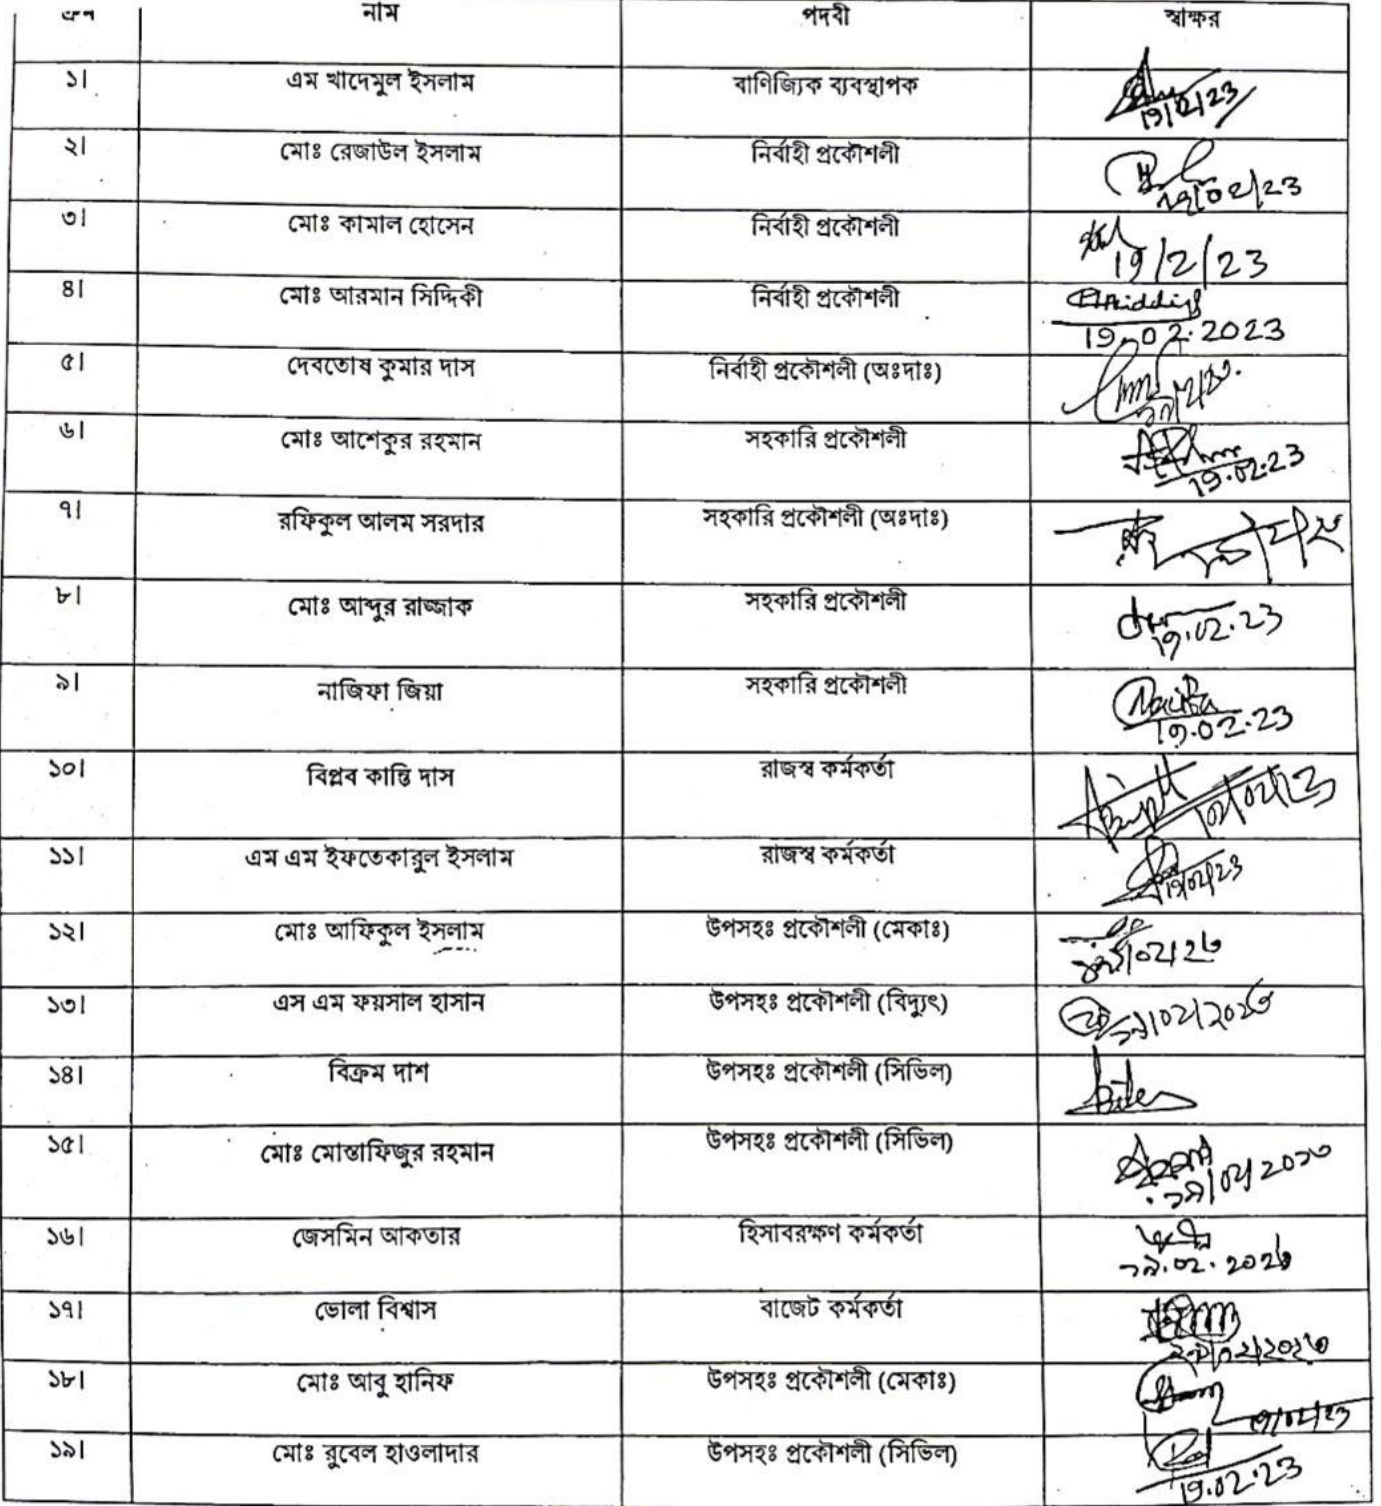 ক্রম নাম পদবী স্বাক্ষর
১। এম খাদেমুল ইসলাম বাণিজ্যিক ব্যবস্থাপক 19/02/23
২। মোঃ রেজাউল ইসলাম নির্বাহী প্রকৌশলী 19/02/23
৩। মোঃ কামাল হোসেন নির্বাহী প্রকৌশলী 19/2/23
৪। মোঃ আরমান সিদ্দিকী নির্বাহী প্রকৌশলী 19.02.2023
৫। দেবতোষ কুমার দাস নির্বাহী প্রকৌশলী (অঃদাঃ)
৬। মোঃ আশেকুর রহমান সহকারি প্রকৌশলী 19.02.23
৭। রফিকুল আলম সরদার সহকারি প্রকৌশলী (অঃদাঃ)
৮। মোঃ আব্দুর রাজ্জাক সহকারি প্রকৌশলী 19.02.23
৯। নাজিফা জিয়া সহকারি প্রকৌশলী 19.02.23
১০। বিপ্লব কান্তি দাস রাজস্ব কর্মকর্তা
১১। এম এম ইফতেকারুল ইসলাম রাজস্ব কর্মকর্তা 19/02/23
১২। মোঃ আফিকুল ইসলাম উপসহঃ প্রকৌশলী (মেকাঃ)
১৩। এস এম ফয়সাল হাসান উপসহঃ প্রকৌশলী (বিদ্যুৎ) ১৯/০২/২০২৩
১৪। বিক্রম দাশ উপসহঃ প্রকৌশলী (সিভিল)
১৫। মোঃ মোস্তাফিজুর রহমান উপসহঃ প্রকৌশলী (সিভিল) ১৯/০২/২০২৩
১৬। জেসমিন আকতার হিসাবরক্ষণ কর্মকর্তা ১৯.০২.২০২৩
১৭। ভোলা বিশ্বাস বাজেট কর্মকর্তা ১৯/০২/২০২৩
১৮। মোঃ আবু হানিফ উপসহঃ প্রকৌশলী (মেকাঃ) 19/02/23
১৯। মোঃ রুবেল হাওলাদার উপসহঃ প্রকৌশলী (সিভিল) 19.02.23